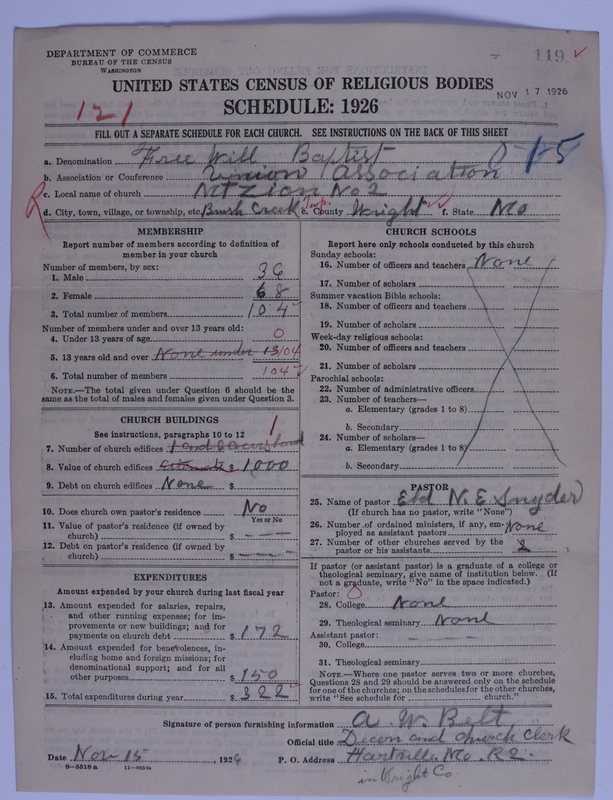 DEPARTMENT OF COMMERCE
BUREAU OF THE CENSUS
WASHINGTON
119
UNITED STATES CENSUS OF RELIGIOUS BODIES
NOV 17 1926
SCHEDULE: 1926
121
FILL OUT A SEPARATE SCHEDULE FOR EACH CHURCH. SEE INSTRUCTIONS ON THE BACK OF THIS SHEET
a. Denomination Free Will Baptist
b. Association or Conference Union Association
c. Local name of church Mt Zion No 2
R
d. City, town, village, or township, etc. Brush Creek Twp. e. County Wright f. State Mo
MEMBERSHIP
Report number of members according to definition of member in your church
Number of members, by sex:
1. Male 36
2. Female 68
3. Total number of members 104
Number of members under and over 13 years old:
4. Under 13 years of age 0
5. 13 years old and over None under 13 104
6. Total number of members 104
NOTE.—The total given under Question 6 should be the same as the total of males and females given under Question 3.
CHURCH BUILDINGS
See instructions, paragraphs 10 to 12
7. Number of church edifices 1
8. Value of church edifices Estimate $ 1000
9. Debt on church edifices None $
10. Does church own pastor's residence No
Yes or No
11. Value of pastor's residence (if owned by church) $ ---
12. Debt on pastor's residence (if owned by church) $ ---
EXPENDITURES
Amount expended by your church during last fiscal year
13. Amount expended for salaries, repairs, and other running expenses; for improvements or new buildings; and for payments on church debt $ 172
14. Amount expended for benevolences, including home and foreign missions; for denominational support; and for all other purposes $ 150
15. Total expenditures during year $ 322
CHURCH SCHOOLS
Report here only schools conducted by this church
Sunday schools:
16. Number of officers and teachers None
17. Number of scholars
Summer vacation Bible schools:
18. Number of officers and teachers
19. Number of scholars
Week-day religious schools:
20. Number of officers and teachers
21. Number of scholars
Parochial schools:
22. Number of administrative officers
23. Number of teachers—
a. Elementary (grades 1 to 8)
b. Secondary
24. Number of scholars—
a. Elementary (grades 1 to 8)
b. Secondary
PASTOR
25. Name of pastor Eld N. E. Snyder
(If church has no pastor, write "None")
26. Number of ordained ministers, if any, employed as assistant pastors None
27. Number of other churches served by the pastor or his assistants 2
If pastor (or assistant pastor) is a graduate of a college or theological seminary, give name of institution below. (If not a graduate, write "No" in the space indicated.)
Pastor:
28. College None
29. Theological seminary None
Assistant pastor:
30. College
31. Theological seminary
NOTE.—Where one pastor serves two or more churches, Questions 28 and 29 should be answered only on the schedule for one of the churches; on the schedules for the other churches, write "See schedule for church."
Signature of person furnishing information A. W. Belt
Official title Decon and church clerk
Date Nov 15, 1926 P. O. Address Hartville Mo. R2.
8-5518a
in Wright Co